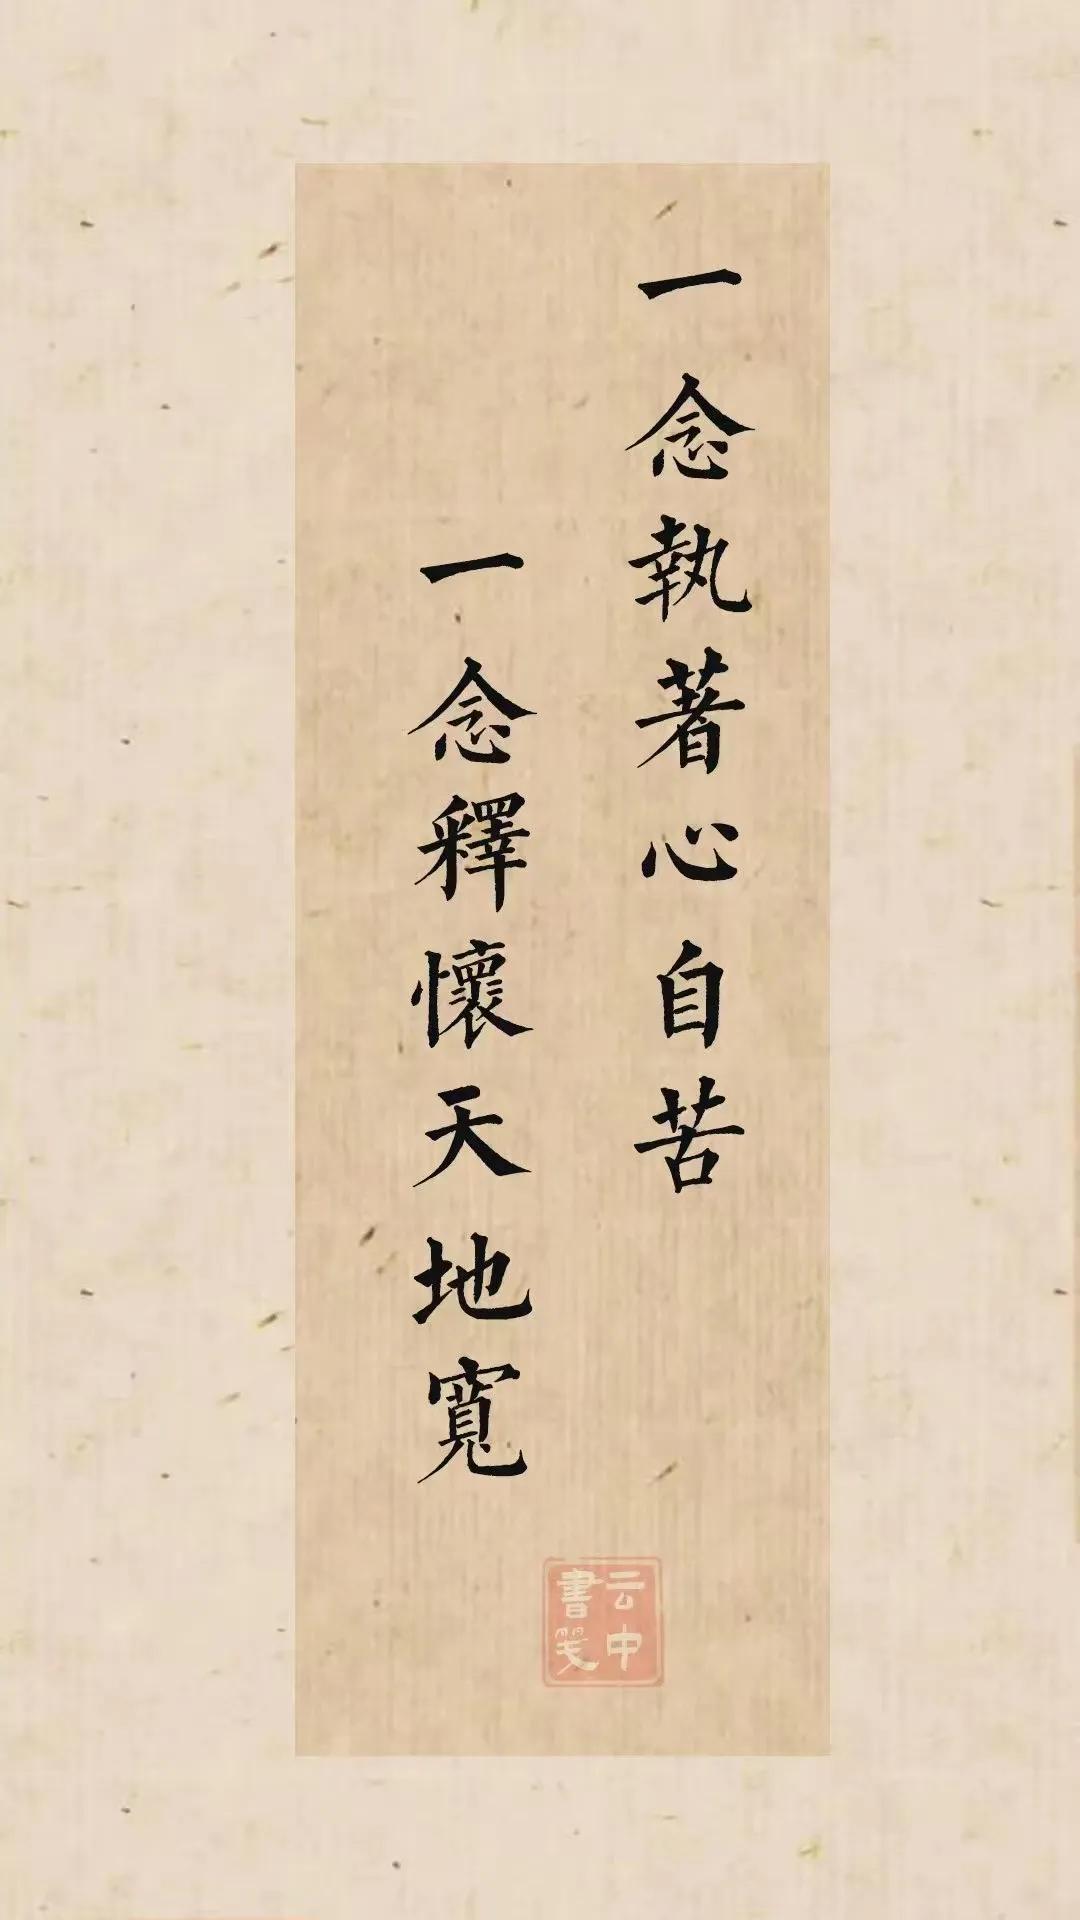 一念執著心自苦
一念釋懷天地寬
云中
書箋